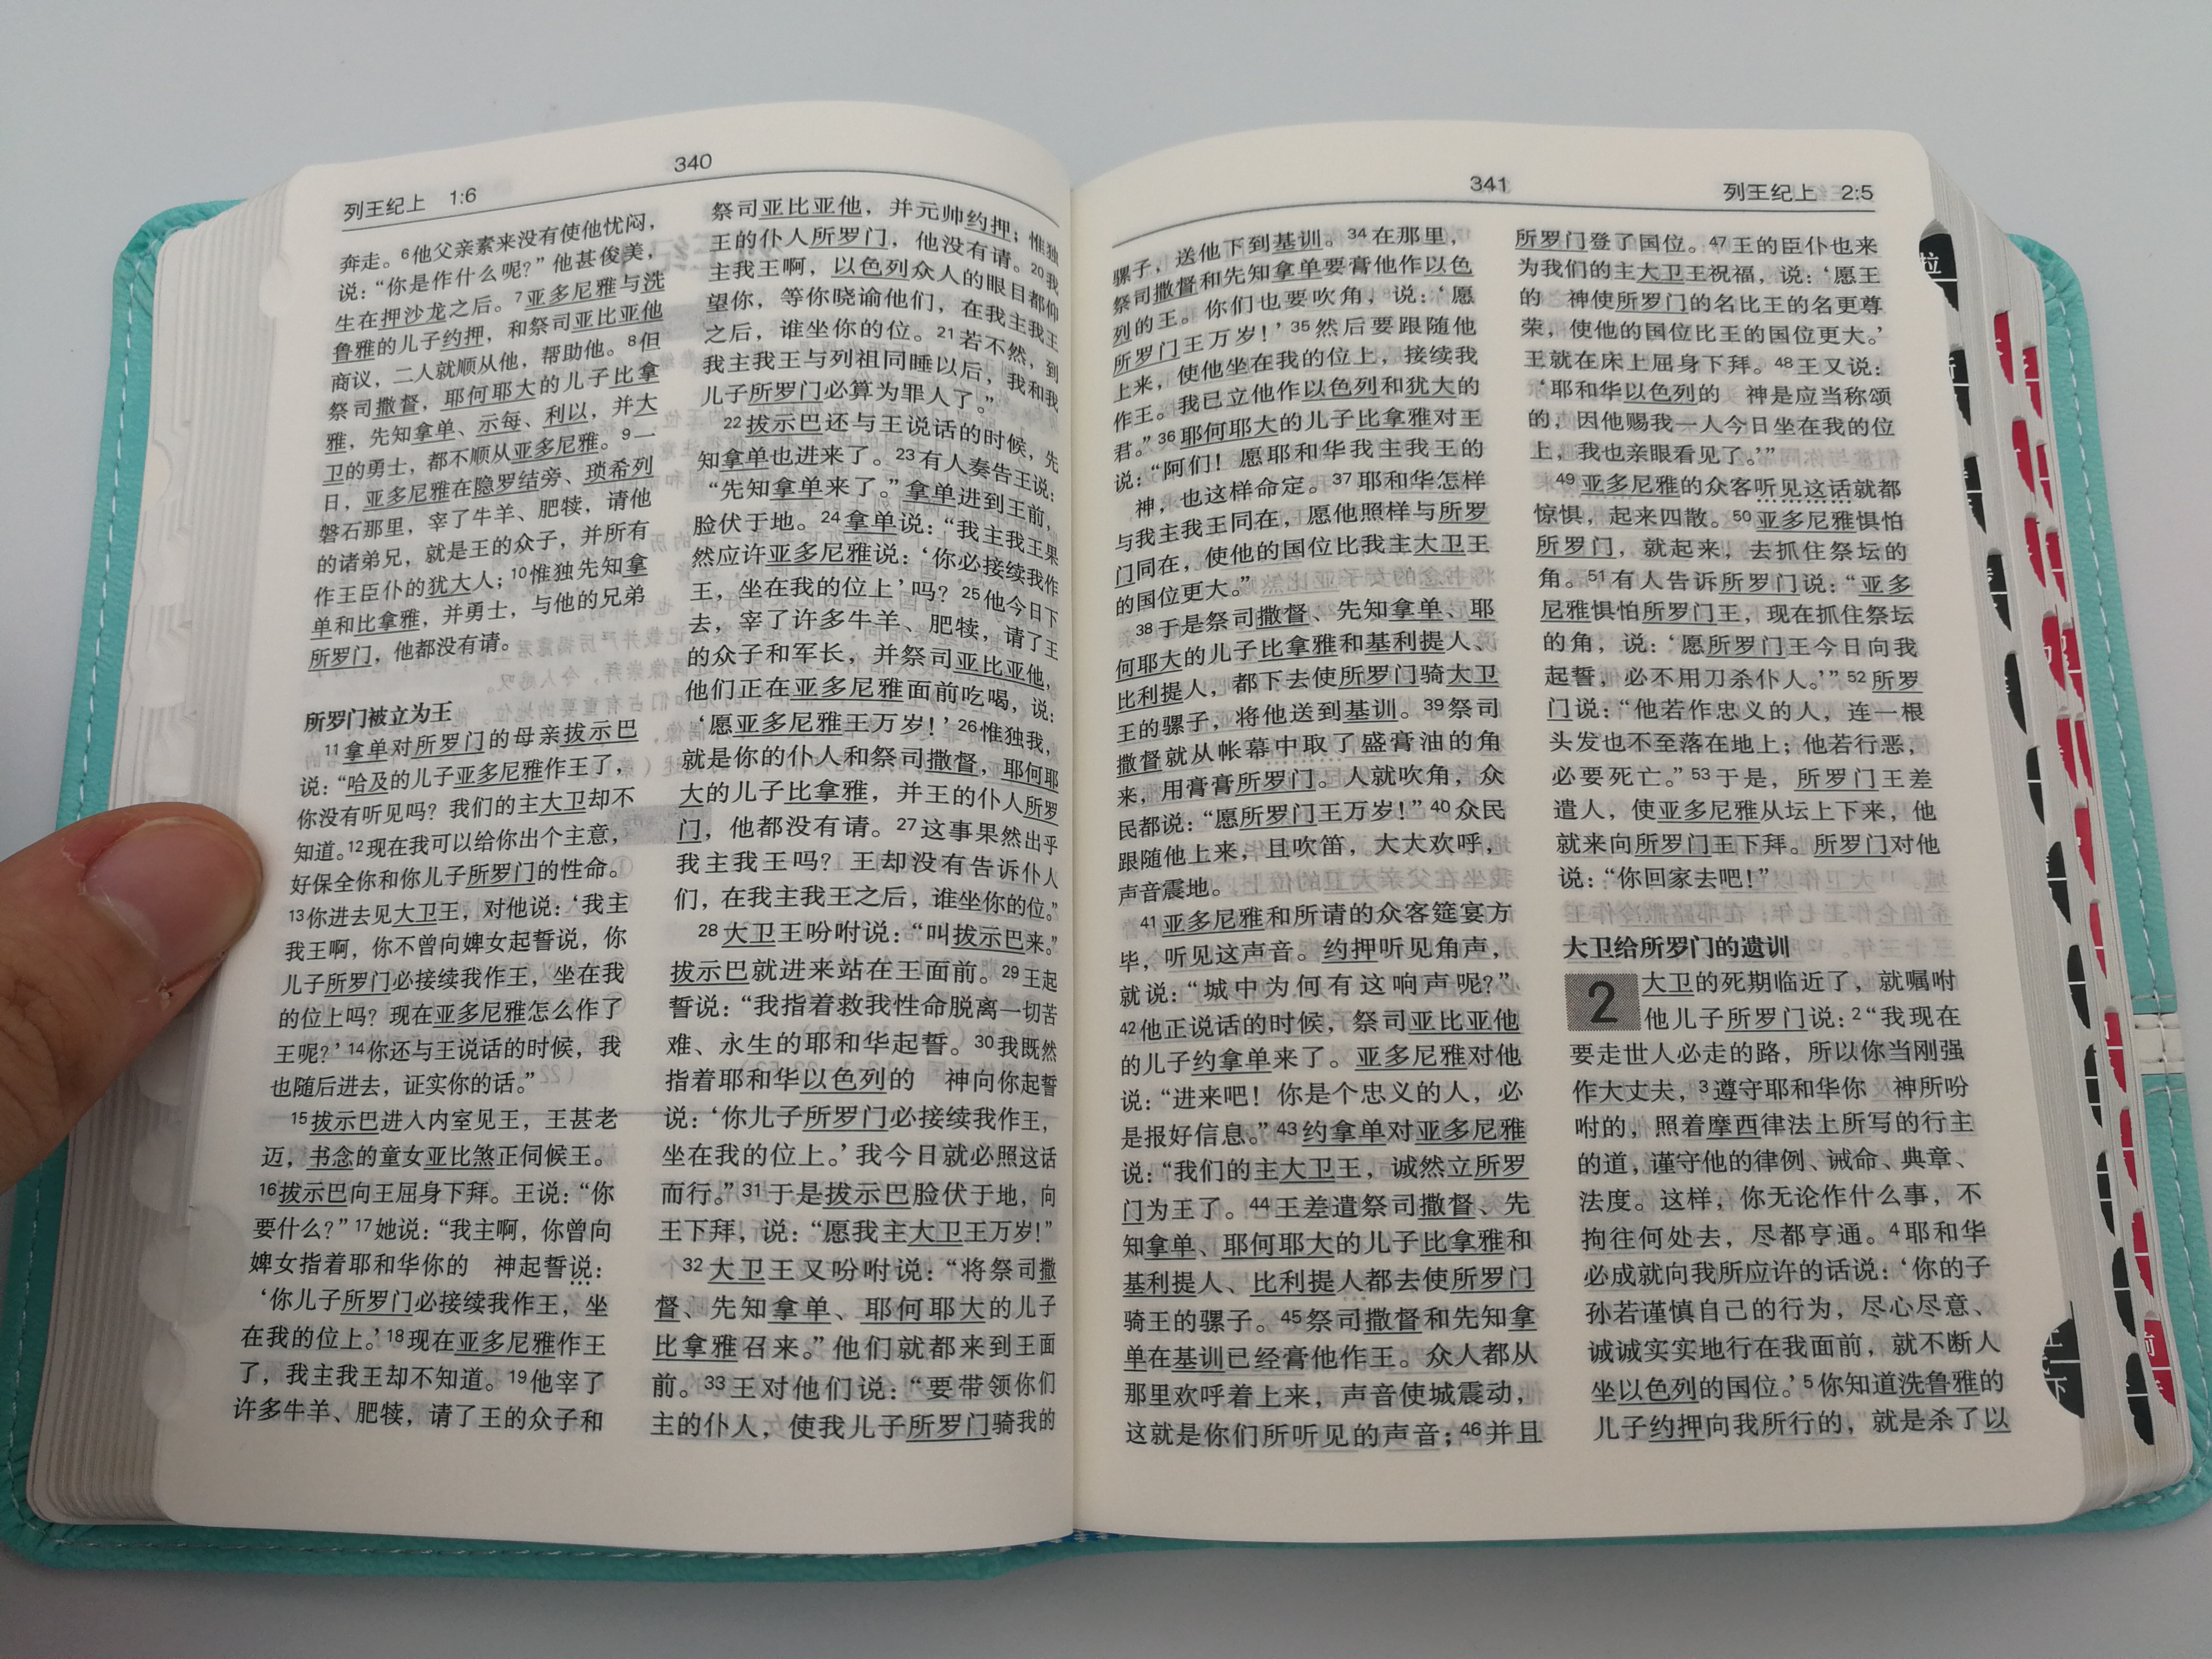 340
列王纪上 1:6
奔走。6他父亲素来没有使他忧闷，
说：“你是作什么呢？”他甚俊美，
生在押沙龙之后。7亚多尼雅与洗
鲁雅的儿子约押，和祭司亚比亚他
商议，二人就顺从他，帮助他。8但
祭司撒督，耶何耶大的儿子比拿
雅，先知拿单、示每、利以，并大
卫的勇士，都不顺从亚多尼雅。9一
日，亚多尼雅在隐罗结旁、琐希列
磐石那里，宰了牛羊、肥犊，请他
的诸弟兄，就是王的众子，并所有
作王臣仆的犹大人；10惟独先知拿
单和比拿雅，并勇士，与他的兄弟
所罗门，他都没有请。
所罗门被立为王
11拿单对所罗门的母亲拔示巴
说：“哈及的儿子亚多尼雅作王了，
你没有听见吗？我们的主大卫却不
知道。12现在我可以给你出个主意，
好保全你和你儿子所罗门的性命。
13你进去见大卫王，对他说：‘我主
我王啊，你不曾向婢女起誓说，你
儿子所罗门必接续我作王，坐在我
的位上吗？现在亚多尼雅怎么作了
王呢？’14你还与王说话的时候，我
也随后进去，证实你的话。”
15拔示巴进入内室见王，王甚老
迈，书念的童女亚比煞正伺候王。
16拔示巴向王屈身下拜。王说：“你
要什么？”17她说：“我主啊，你曾向
婢女指着耶和华你的　神起誓说：
‘你儿子所罗门必接续我作王，坐
在我的位上。’18现在亚多尼雅作王
了，我主我王却不知道。19他宰了
许多牛羊、肥犊，请了王的众子和
祭司亚比亚他，并元帅约押；惟独
王的仆人所罗门，他没有请。20我
主我王啊，以色列众人的眼目都仰
望你，等你晓谕他们，在我主我王
之后，谁坐你的位。21若不然，到
我主我王与列祖同睡以后，我和我
儿子所罗门必算为罪人了。”
22拔示巴还与王说话的时候，先
知拿单也进来了。23有人奏告王说：
“先知拿单来了。”拿单进到王前，
脸伏于地。24拿单说：“我主我王果
然应许亚多尼雅说：‘你必接续我作
王，坐在我的位上’吗？25他今日下
去，宰了许多牛羊、肥犊，请了王
的众子和军长，并祭司亚比亚他，
他们正在亚多尼雅面前吃喝，说：
‘愿亚多尼雅王万岁！’26惟独我，
就是你的仆人和祭司撒督，耶何耶
大的儿子比拿雅，并王的仆人所罗
门，他都没有请。27这事果然出乎
我主我王吗？王却没有告诉仆人
们，在我主我王之后，谁坐你的位。”
28大卫王吩咐说：“叫拔示巴来。”
拔示巴就进来站在王面前。29王起
誓说：“我指着救我性命脱离一切苦
难、永生的耶和华起誓。30我既然
指着耶和华以色列的　神向你起誓
说：‘你儿子所罗门必接续我作王，
坐在我的位上。’我今日就必照这话
而行。”31于是拔示巴脸伏于地，向
王下拜，说：“愿我主大卫王万岁！”
32大卫王又吩咐说：“将祭司撒
督、先知拿单、耶何耶大的儿子
比拿雅召来。”他们就都来到王面
前。33王对他们说：“要带领你们
主的仆人，使我儿子所罗门骑我的
341
列王纪上 2:5
骡子，送他下到基训。34在那里，
祭司撒督和先知拿单要膏他作以色
列的王。你们也要吹角，说：‘愿
所罗门王万岁！’35然后要跟随他
上来，使他坐在我的位上，接续我
作王。我已立他作以色列和犹大的
君。”36耶何耶大的儿子比拿雅对王
说：“阿们！愿耶和华我主我王的
神，也这样命定。37耶和华怎样
与我主我王同在，愿他照样与所罗
门同在，使他的国位比我主大卫王
的国位更大。”
38于是祭司撒督、先知拿单、耶
何耶大的儿子比拿雅和基利提人、
比利提人，都下去使所罗门骑大卫
王的骡子，将他送到基训。39祭司
撒督就从帐幕中取了盛膏油的角
来，用膏膏所罗门。人就吹角，众
民都说：“愿所罗门王万岁！”40众民
跟随他上来，且吹笛，大大欢呼，
声音震地。
41亚多尼雅和所请的众客筵宴方
毕，听见这声音。约押听见角声，
就说：“城中为何有这响声呢？”
42他正说话的时候，祭司亚比亚他
的儿子约拿单来了。亚多尼雅对他
说：“进来吧！你是个忠义的人，必
是报好信息。”43约拿单对亚多尼雅
说：“我们的主大卫王，诚然立所罗
门为王了。44王差遣祭司撒督、先
知拿单、耶何耶大的儿子比拿雅和
基利提人、比利提人都去使所罗门
骑王的骡子。45祭司撒督和先知拿
单在基训已经膏他作王。众人都从
那里欢呼着上来，声音使城震动，
这就是你们所听见的声音；46并且
所罗门登了国位。47王的臣仆也来
为我们的主大卫王祝福，说：‘愿王
的　神使所罗门的名比王的名更尊
荣，使他的国位比王的国位更大。’
王就在床上屈身下拜。48王又说：
‘耶和华以色列的　神是应当称颂
的，因他赐我一人今日坐在我的位
上，我也亲眼看见了。’”
49亚多尼雅的众客听见这话就都
惊惧，起来四散。50亚多尼雅惧怕
所罗门，就起来，去抓住祭坛的
角。51有人告诉所罗门说：“亚多
尼雅惧怕所罗门王，现在抓住祭坛
的角，说：‘愿所罗门王今日向我
起誓，必不用刀杀仆人。’”52所罗
门说：“他若作忠义的人，连一根
头发也不至落在地上；他若行恶，
必要死亡。”53于是，所罗门王差
遣人，使亚多尼雅从坛上下来，他
就来向所罗门王下拜。所罗门对他
说：“你回家去吧！”
大卫给所罗门的遗训
2 大卫的死期临近了，就嘱咐
他儿子所罗门说：2“我现在
要走世人必走的路，所以你当刚强
作大丈夫，3遵守耶和华你　神所吩
咐的，照着摩西律法上所写的行主
的道，谨守他的律例、诫命、典章、
法度。这样，你无论作什么事，不
拘往何处去，尽都亨通。4耶和华
必成就向我所应许的话说：‘你的子
孙若谨慎自己的行为，尽心尽意、
诚诚实实地行在我面前，就不断人
坐以色列的国位。’5你知道洗鲁雅的
儿子约押向我所行的，就是杀了以